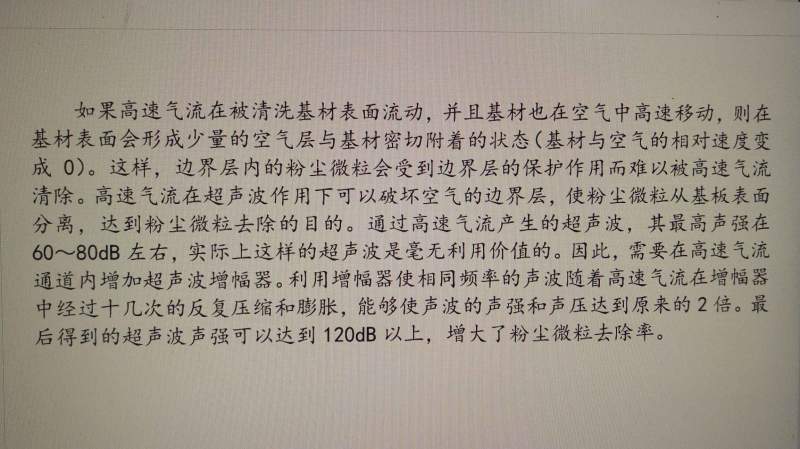 如果高速气流在被清洗基材表面流动，并且基材也在空气中高速移动，则在
基材表面会形成少量的空气层与基材密切附着的状态（基材与空气的相对速度变
成 0）。这样，边界层内的粉尘微粒会受到边界层的保护作用而难以被高速气流
清除。高速气流在超声波作用下可以破坏空气的边界层，使粉尘微粒从基板表面
分离，达到粉尘微粒去除的目的。通过高速气流产生的超声波，其最高声强在
60～80dB 左右，实际上这样的超声波是毫无利用价值的。因此，需要在高速气流
通道内增加超声波增幅器。利用增幅器使相同频率的声波随着高速气流在增幅器
中经过十几次的反复压缩和膨胀，能够使声波的声强和声压达到原来的 2 倍。最
后得到的超声波声强可以达到 120dB 以上，增大了粉尘微粒去除率。